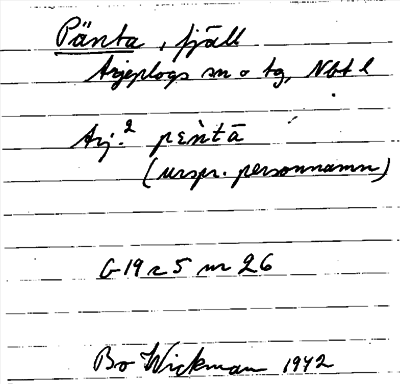 Pänta, fjäll
Arjeplogs sn o tg, Nbt l
Arj.² pèntā
(urspr. personnamn)
G 19 c 5 nr 26
Bo Wickman 1942